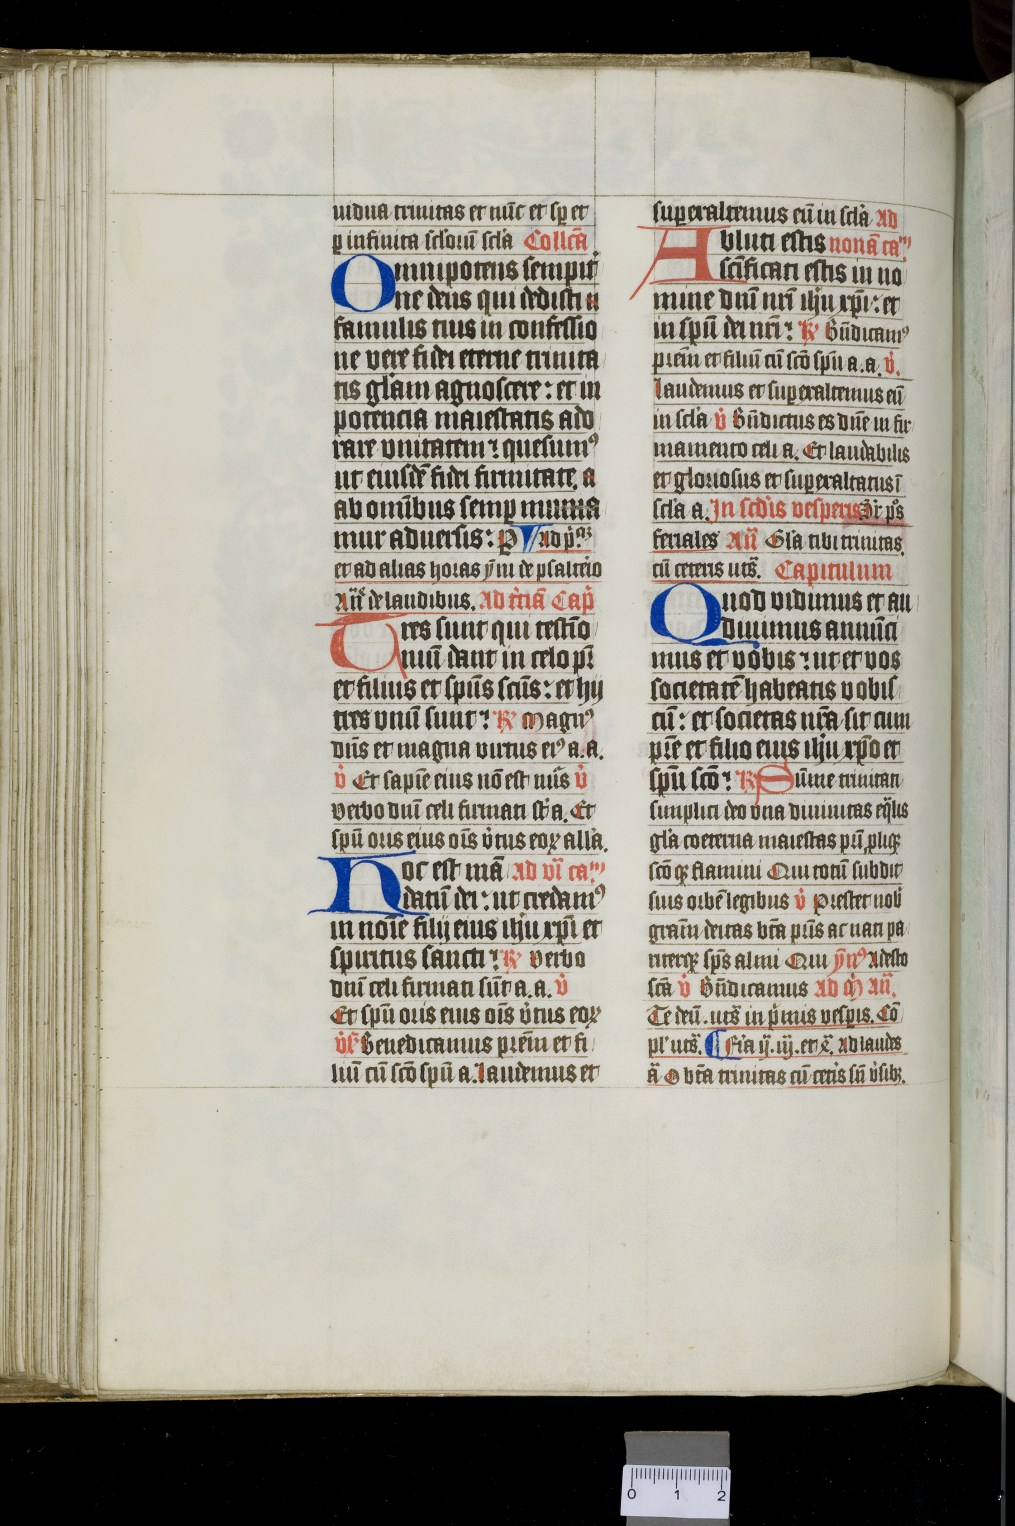 uidua trinitas et nūc et sp̱ et
p̱ infinita sc̄lorū sc̄la Collc̄a
Omnipotens sempit̄
ne deus qui dedisti
famulis tuis in confessio
ne vere fidei eterne trinita
tis gl̄am agnoscere: et in
potencia maiestatis ado
rare vnitatem: quesumꝰ
ut eiusdē fidei firmitate. a
ab omībus semp̱ munia
mur aduersis: P Ad p̄ᵃᵐ
et ad alias horas ȳni de psalteio
An̄ de laudibus. Ad tc̄iā Cap̄
Tres sunt qui testīo
niū dant in celo pr̄
et filius et sp̄us sc̄us: et hij
tres vnū sunt: R̄ Magnꝰ
dūs et magna virtus eiꝰ a. a.
v̄ Et sapīe eius nō est nūs v̄
verbo dn̄i celi firmati st̄ a. Et
sp̄u oris eius oīs v̄tus eoꝝ all̄a.
Hoc est mā Ad vi caᵐ
datū dei: ut credamꝰ
in noīe filij eius ihū xp̄i et
spiritus sancti: R̄ Verbo
dn̄i celi firmati sūt a. a. v̄
Et sp̄u oris eius oīs v̄tus eoꝝ
v̄s̄ Benedicamus prēm et fi
liū cū sc̄o sp̄u a. Laudemus et
superaltemus eū in sc̄la Ad
Abluti estis nonā caᵐ
sc̄ificati estis in no
mine dn̄i nr̄i ihū xp̄i: et
in sp̄u dei nr̄i: R̄ Bn̄dicamꝰ
prēm et filiū cū sc̄o sp̄u a. a. v̄.
Laudemus et superaltemus eū
in sc̄la v̄ Bn̄dictus es dn̄e in fir
mamento celi a. Et laudabilis
et gloriosus et superaltatus ī
sc̄la a. In sc̄dis vesperis Dr̄ ps̄
feriales An̄ Gl̄a tibi trinitas
cū ceteris uts̄. Capitulum
Quod vidimus et au
diuimus annūci
mus et vobis: ut et vos
societatē habeatis vobis
cū: et societas nr̄a sit cum
pr̄e et filio eius ihū xp̄o et
sp̄u sc̄o: R̄ Sūme trinitati
simplici deo vna diuinitas eq̄lis
gl̄a coeterna maiestas pr̄i p̱liqꝫ
sc̄o qꝫ flamini Qui totū subdit
suis orbē legibus v̄ Prestet nob̄
gratīā deitas bt̄a pr̄is ac nati pa
riterqꝫ sp̄s almi Qui ȳnꝰ Adesto
sc̄a v̄ Bn̄dicamus Ad M̄ An̄.
Te deū. uts̄ in p̄mis vesp̱is. Cō
pl̄ uts̄. Fīa ij. iij. et x̄. Ad laudes
ā O bt̄a trinitas cū cet̄is sn̄ v̄sibꝫ.